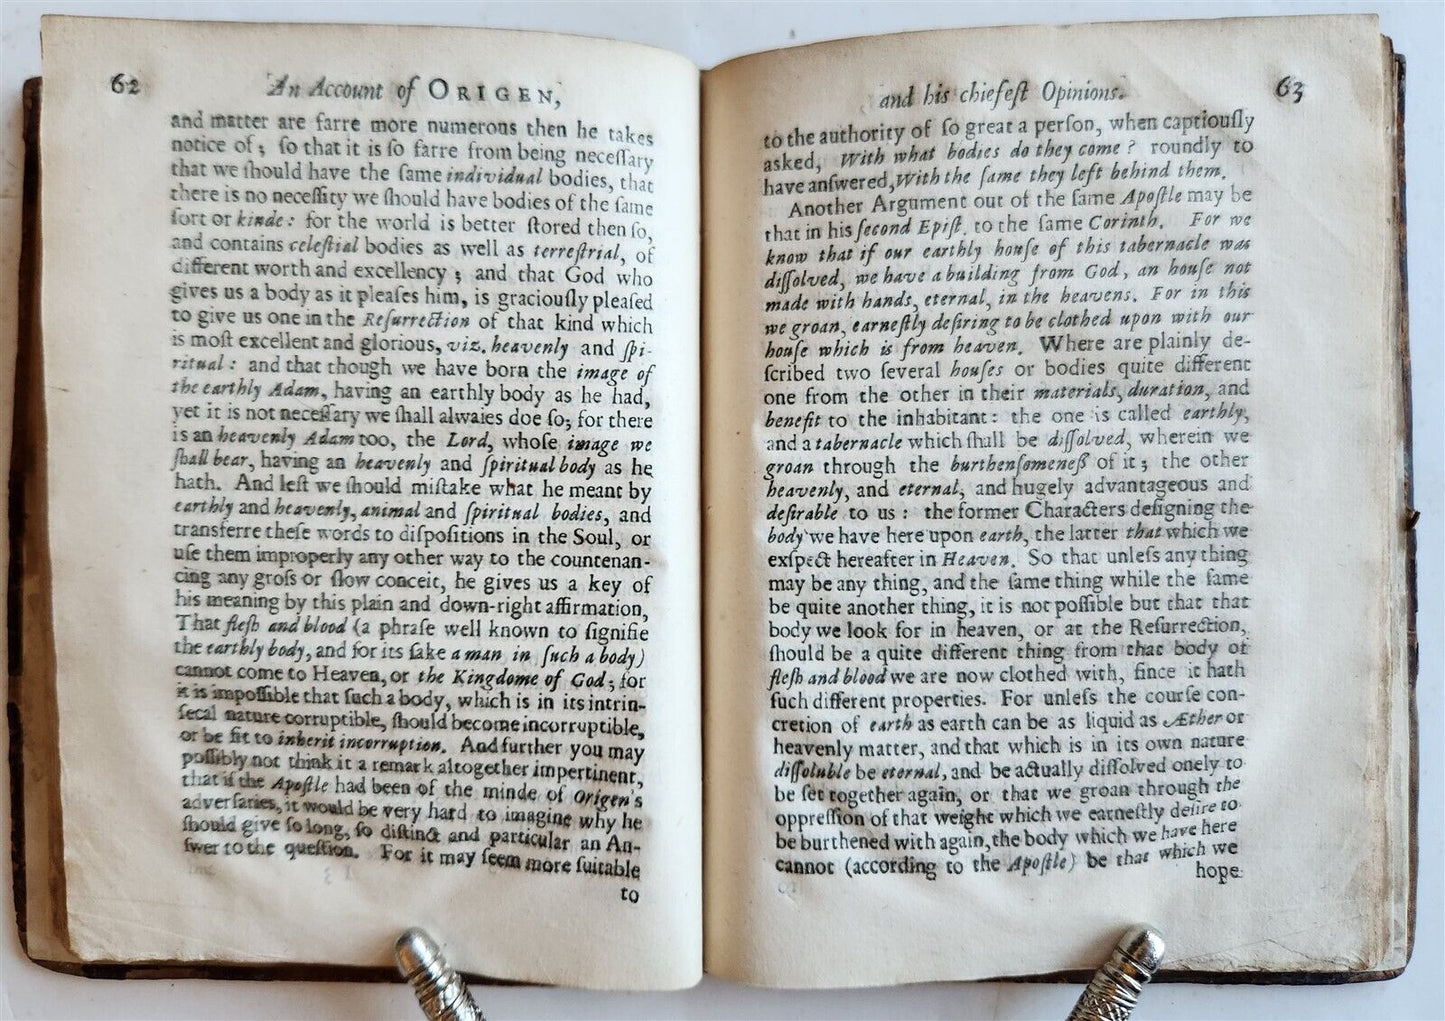 62
An Account of ORIGEN,
and matter are farre more numerous then he takes
notice of; ſo that it is ſo farre from being neceſſary
that we ſhould have the ſame individual bodies, that
there is no neceſſity we ſhould have bodies of the ſame
ſort or kinde: for the world is better ſtored then ſo,
and contains celeſtial bodies as well as terreſtrial, of
different worth and excellency; and that God who
gives us a body as it pleaſes him, is graciouſly pleaſed
to give us one in the Reſurrection of that kind which
is moſt excellent and glorious, viz. heavenly and ſpi-
ritual: and that though we have born the image of
the earthly Adam, having an earthly body as he had,
yet it is not neceſſary we ſhall alwaies doe ſo; for there
is an heavenly Adam too, the Lord, whoſe image we
ſhall bear, having an heavenly and ſpiritual body as he
hath. And leſt we ſhould miſtake what he meant by
earthly and heavenly, animal and ſpiritual bodies, and
transferre theſe words to diſpoſitions in the Soul, or
uſe them improperly any other way to the countenan-
cing any groſs or ſlow conceit, he gives us a key of
his meaning by this plain and down-right affirmation,
That fleſh and blood (a phraſe well known to ſignifie
the earthly body, and for its ſake a man in ſuch a body)
cannot come to Heaven, or the Kingdome of God; for
it is impoſſible that ſuch a body, which is in its intrin-
ſecal nature corruptible, ſhould become incorruptible,
or be fit to inherit incorruption. And further you may
poſſibly not think it a remark altogether impertinent,
that if the Apoſtle had been of the minde of Origen's
adverſaries, it would be very hard to imagine why he
ſhould give ſo long, ſo diſtinct and particular an An-
ſwer to the queſtion. For it may ſeem more ſuitable
to
and his chiefeſt Opinions.
63
to the authority of ſo great a perſon, when captiouſly
asked, With what bodies do they come? roundly to
have anſwered, With the ſame they left behind them.
Another Argument out of the ſame Apoſtle may be
that in his ſecond Epiſt. to the ſame Corinth. For we
know that if our earthly houſe of this tabernacle was
diſſolved, we have a building from God, an houſe not
made with hands, eternal, in the heavens. For in this
we groan, earneſtly deſiring to be clothed upon with our
houſe which is from heaven. Where are plainly de-
ſcribed two ſeveral houſes or bodies quite different
one from the other in their materials, duration, and
benefit to the inhabitant: the one is called earthly,
and a tabernacle which ſhall be diſſolved, wherein we
groan through the burthenſomeneß of it; the other
heavenly, and eternal, and hugely advantageous and
deſirable to us: the former Characters deſigning the
body we have here upon earth, the latter that which we
exſpect hereafter in Heaven. So that unleſs any thing
may be any thing, and the ſame thing while the ſame
be quite another thing, it is not poſſible but that that
body we look for in heaven, or at the Reſurrection,
ſhould be a quite different thing from that body of
fleſh and blood we are now clothed with, ſince it hath
ſuch different properties. For unleſs the courſe con-
cretion of earth as earth can be as liquid as Æther or
heavenly matter, and that which is in its own nature
diſſoluble be eternal, and be actually diſſolved onely to
be ſet together again, or that we groan through the
oppreſſion of that weight which we earneſtly deſire to
be burthened with again, the body which we have here
cannot (according to the Apoſtle) be that which we
hope